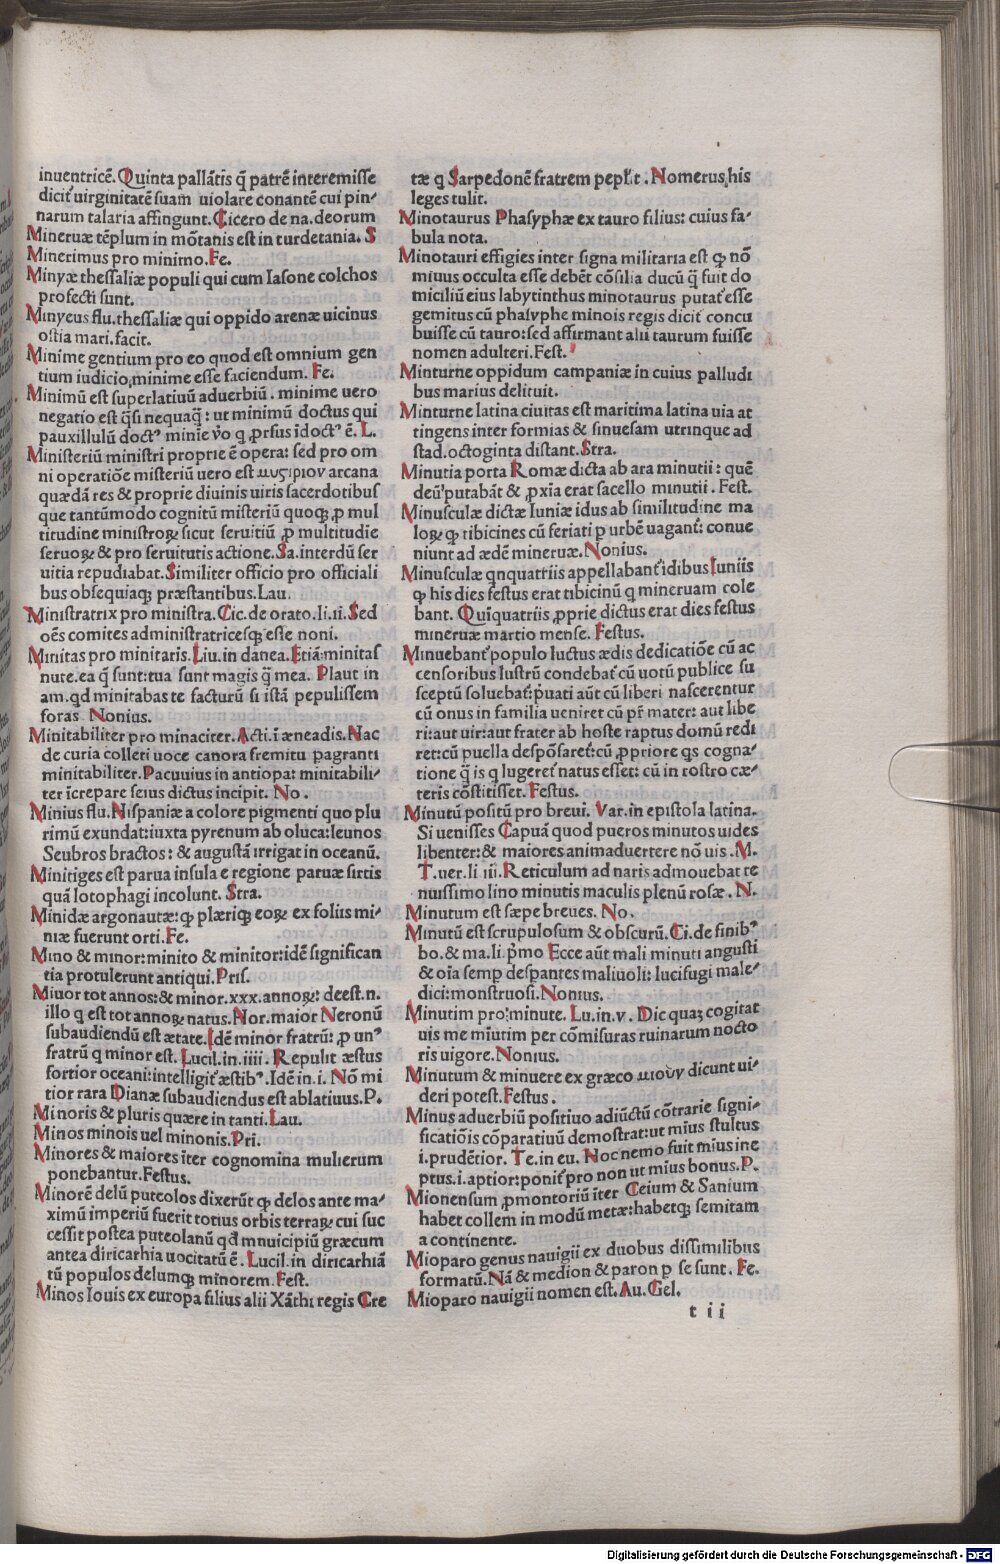 inuentricē. Quinta pallātis q̄ patrē interemisse
dicit̄ uirginitatē suam uiolare conantē cui pin⸗
narum talaria affingunt. Cicero de na. deorum
Mineruæ tēplum in mōtanis est in turdetania. S
Minerimus pro minimo. Fe.
Minyæ thessaliæ populi qui cum Iasone colchos
profecti sunt.
Minyeus flu. thessaliæ qui oppido arenæ uicinus
ostia mari. facit.
Minime gentium pro eo quod est omnium gen
tium iudicio, minime esse faciendum. Fe.
Minimū est superlatiuū aduerbiū. minime uero
negatio est q̄si nequaq̄: ut minimū doctus qui
pauxillulū doctꝰ minie v̄o q ꝓrsus idoctꝰ ē. L.
Ministeriū ministri proprie ē opera: sed pro om
ni operatiōe misteriū uero est μυςιριον arcana
quædā res & proprie diuinis uiris sacerdotibus
que tantūmodo cognitū misteriū quoqꝫ ꝓ mul
titudine ministroꝝ sicut seruitiū ꝓ multitudie
seruoꝝ & pro seruitutis actione. Sa. interdū ser
uitia repudiabat. Similiter officio pro officiali
bus obsequiaqꝫ præstantibus. Lau.
Ministratrix pro ministra. Cic. de orato. li. ii. Sed
oēs comites administratricesqꝫ esse noni.
Minitas pro minitaris. Liu. in danea. Etiā minitas
nute. ea q̄ sunt: tua sunt magis q̄ mea. Plaut in
am. qd minitabas te facturū si istā pepulissem
foras Nonius.
Minitabiliter pro minaciter. Acti. ī æneadis. Nac
de curia colleri uoce canora fremitu pagranti
minitabiliter. Pacuuius in antiopa: minitabili⸗
ter īcrepare seius dictus incipit. No.
Minius flu. Nispaniæ a colore pigmenti quo plu
rimū exundat: iuxta pyrenum ab oluca: leunos
Seubros bractos: & augustā irrigat in oceanū.
Minitiges est parua insula e regione paruæ sirtis
quā lotophagi incolunt. Stra.
Minidæ argonautæ: ꝙ plæriqꝫ eoꝝ ex foliis mi⸗
niæ fuerunt orti. Fe.
Mino & minor: minito & minitor: idē significan
tia protulerunt antiqui. Pris.
Miuor tot annos: & minor. xxx. annoꝝ: deest. n.
illo q est tot annoꝝ natus. Nor. maior Neronū
subaudiendū est ætate. Idē minor fratrū: ꝓ unꝰ
fratrū q minor est. Lucil. in. iiii. Repulit æstus
fortior oceani: intelligit̄ æstibꝰ. Idē in. i. Nō mi
tior rara Dianæ subaudiendus est ablatiuus. P.
Minoris & pluris quære in tanti. Lau.
Minos minois uel minonis. Pri.
Minores & maiores īter cognomina mulierum
ponebantur. Festus.
Minorē delū puteolos dixerūt ꝙ delos ante ma⸗
ximū imperiū fuerit totius orbis terraꝝ cui suc
cessit postea puteolanū qd̄ mnuicipiū græcum
antea diricarhia uocitatū ē. Lucil. in diricarhiā
tū populos delumqꝫ minorem. Fest.
Minos Iouis ex europa filius alii Xāthi regis Cre
tæ q Sarpedonē fratrem pepl̄t. Nomerus, his
leges tulit.
Minotaurus Phasyphæ ex tauro filius: cuius fa⸗
bula nota.
Minotauri effigies inter signa militaria est ꝙ nō
miuus occulta esse debēt cōsilia ducū q̄ fuit do
miciliū eius labytinthus minotaurus putat̄ esse
gemitus cū phasyphe minois regis dicit̄ concu
buisse cū tauro: sed affirmant alii taurum fuisse
nomen adulteri. Fest.
Minturne oppidum campaniæ in cuius palludi
bus marius delituit.
Minturne latina ciuitas est maritima latina uia at
tingens inter formias & sinuesam utrinque ad
stad. octoginta distant. Stra.
Minutia porta Romæ dicta ab ara minutii: quē
deū putabāt & ꝓxīa erat sacello minutii. Fest.
Minusculæ dictæ Iuniæ idus ab similitudine ma
loꝝ ꝙ tibicines cū feriati p urbē uagant̄: conue
niunt ad ædē mineruæ. Nonius.
Minusculæ qnquatriis appellabant̄ idibus Iuniis
ꝙ his dies festus erat tibicinū q mineruam cole
bant. Quīquatriis ꝓprie dictus erat dies festus
mineruæ martio mense. Festus.
Minuebant̄ populo luctus ædis dedicatiōe cū ac
censoribus lustrū condebat̄ cū uotū publice su
sceptū soluebat̄: p̄uati aūt cū liberi nascerentur
cū onus in familia ueniret cū pr̄ mater: aut libe
ri: aut uir: aut frater ab hoste raptus domū redi
ret: cū puella despōsaret̄: cū ꝓpriore qs cogna⸗
tione q̄ is q lugeret̄ natus esset: cū in rostro cæ⸗
teris cōstitisset. Festus.
Minutū positū pro breui. Var. in epistola latina.
Si uenisses Capuā quod pueros minutos uides
libenter: & maiores animaduertere nō uis. M.
T. uer. li iii. Reticulum ad naris admouebat te
nuissimo lino minutis maculis plenū rosæ. N.
Minutum est sæpe breues. No.
Minutū est scrupulosum & obscurū. Ci. de finibꝰ
bo. & ma. li. p̄mo Ecce aūt mali minuti angusti
& oīa semp despantes maliuoli: lucifugi male⸗
dici: monstruosi. Nonius.
Minutim pro: minute. Lu. in. v. Dic quaꝫ cogitat
uis me miutim per cōmisuras ruinarum nocto
ris uigore. Nonius.
Minutum & minuere ex græco μιουν dicunt ui⸗
deri potest. Festus.
Minus aduerbiū positiuo adiūctū cōtrarie signi⸗
ficatiōis cōparatiuū demostrat: ut mius stultus
i. prudētior. Te. in eu. Noc nemo fuit mius ine
ptus. i. aptior: ponit̄ pro non ut mius bonus. P.
Mionensum ꝓmontoriū īter Ceium & Sanium
habet collem in modū metæ: habetqꝫ semitam
a continente.
Mioparo genus nauigii ex duobus dissimilibus
formatū. Nā & medion & paron p se sunt. Fe.
Mioparo nauigii nomen est. Au. Gel.
t ii
Digitalisierung gefördert durch die Deutsche Forschungsgemeinschaft - DFG